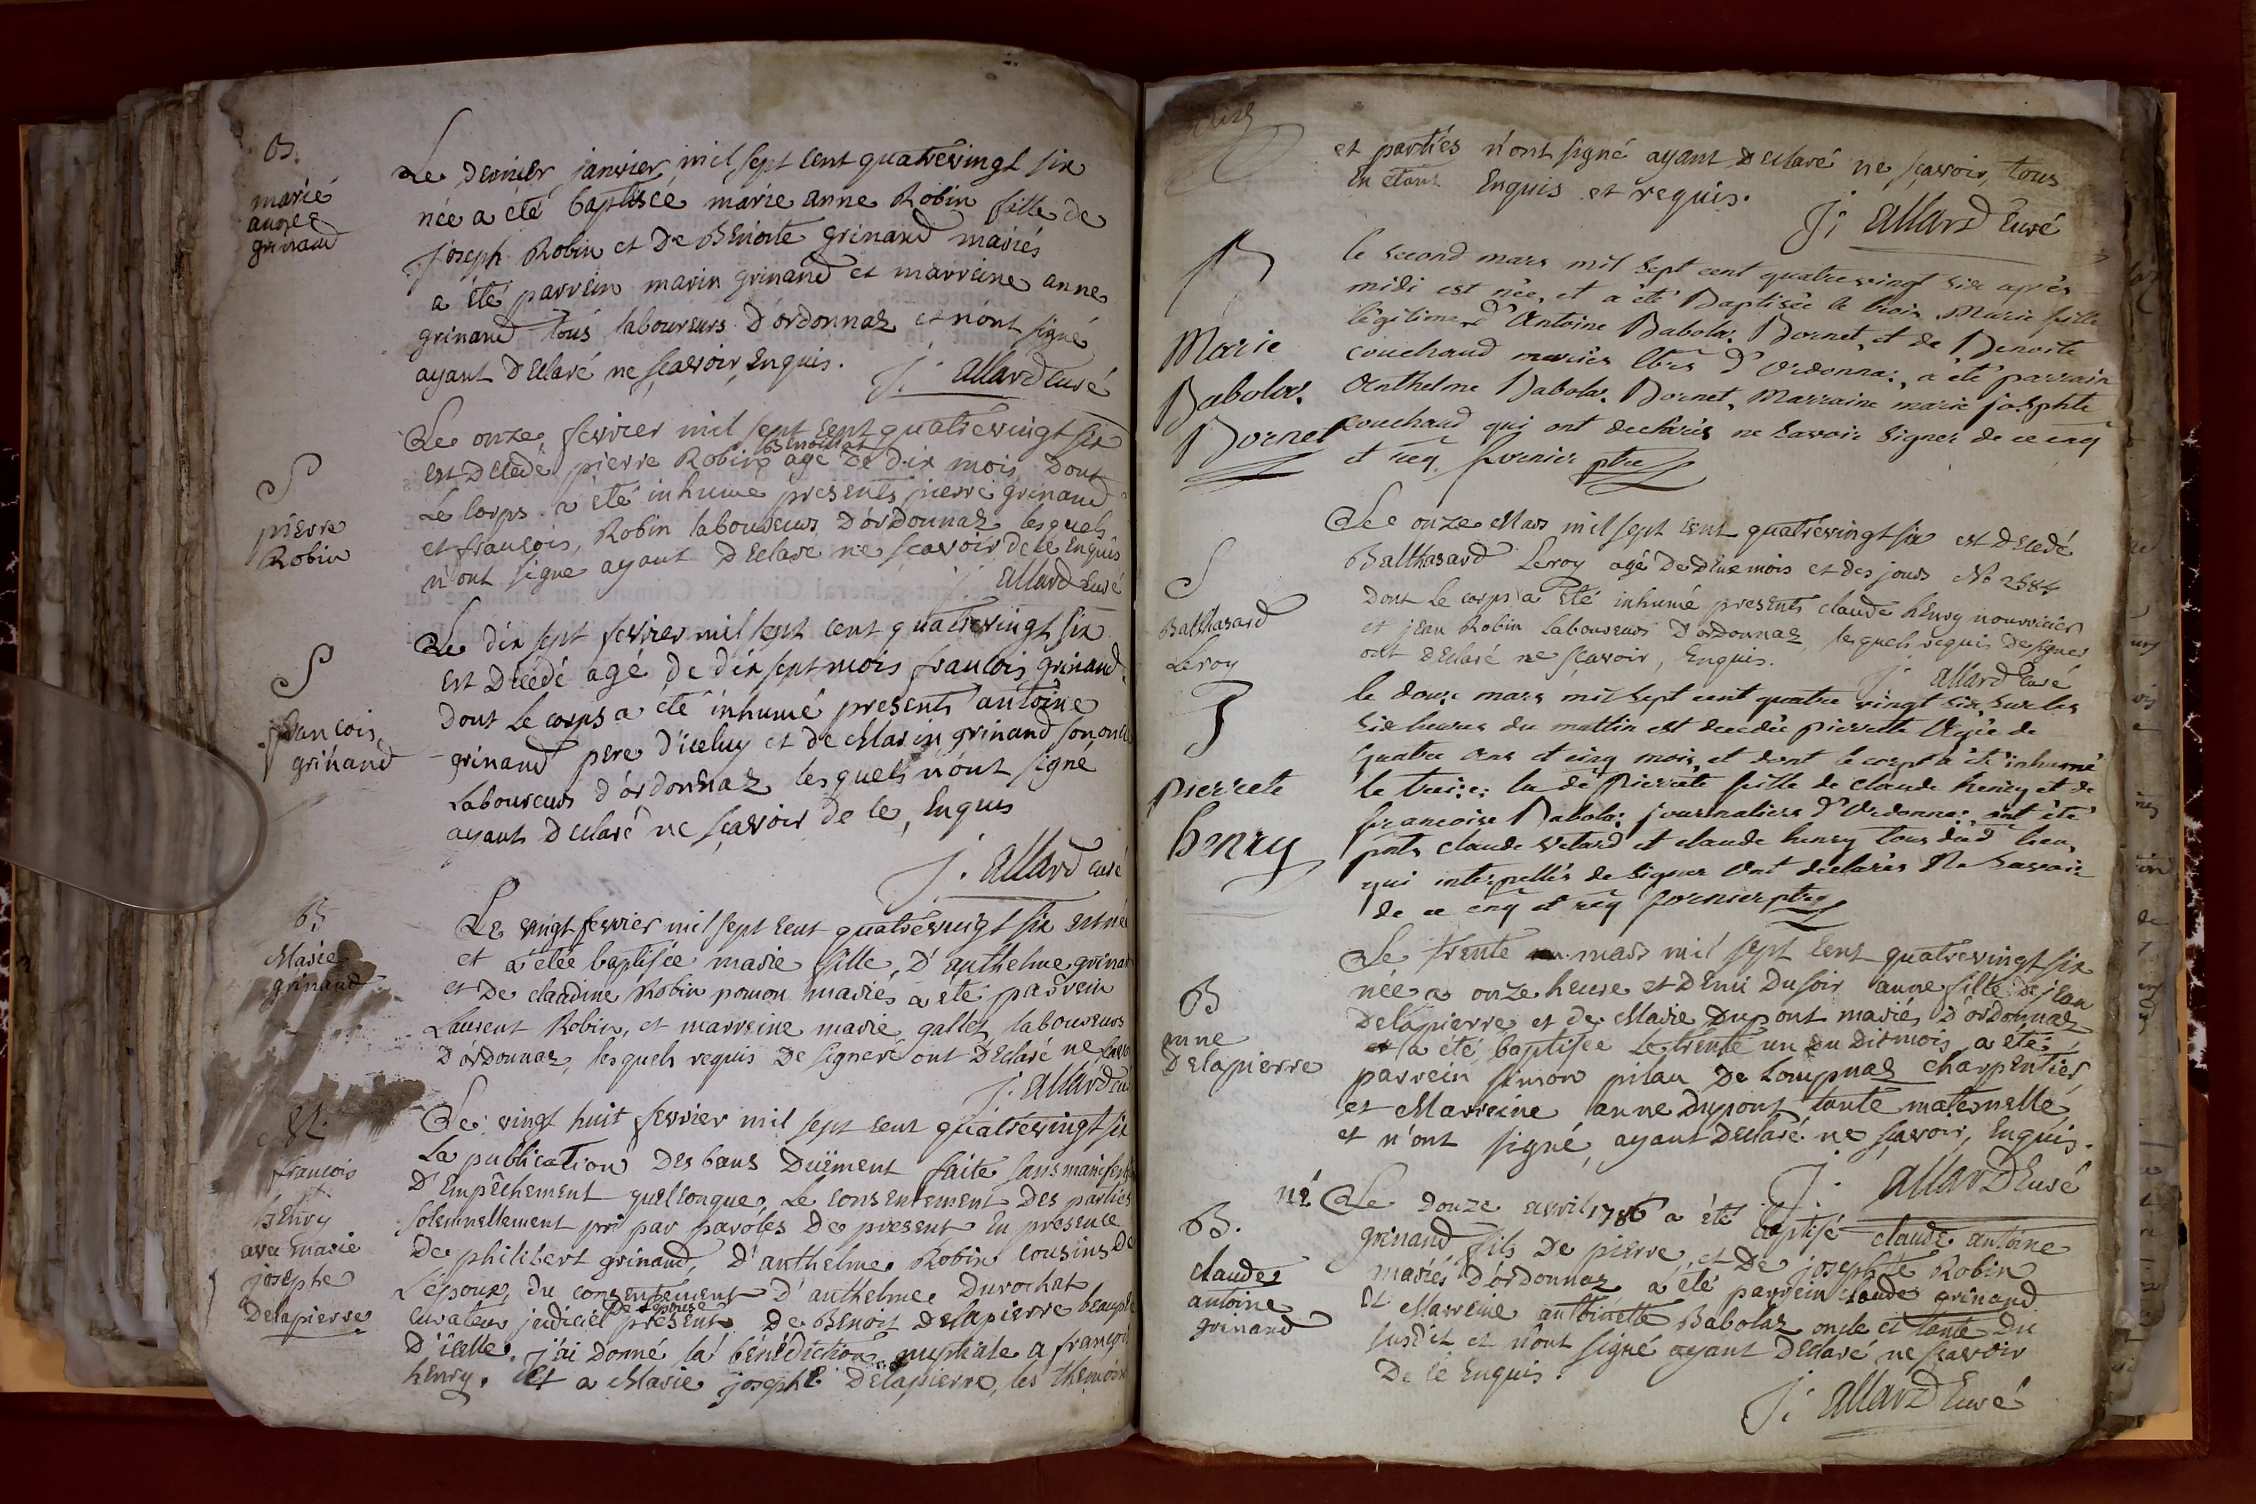 B.
marie
anne
grinand
Le dernier janvier mil sept cent quatrevingt six
née a été baptisée marie anne Robin fille de
joseph Robin et de Benoite grinand mariés
a été parrein marin grinand et marreine anne
grinand tous laboureurs d'ordonnaz et n'ont signé
ayant declaré ne sçavoir, Enquis.
J. Allard curé
S
pierre
Robin
Le onze fevrier mil sept cent quatrevingt six
Benoillat
est decedé pierre Robin agé de dix mois dont
Le corps a été inhumé presents pierre grinand
et françois Robin laboureurs d'ordonnaz lesquels
n'ont signé ayant declaré ne sçavoir de ce Enquis
J. Allard curé
S
françois
grinand
Le dix sept fevrier mil sept cent quatrevingt six
est decedé agé de dix sept mois françois grinand
dont le corps a été inhumé presents antoine
grinand pere d'iceluy et de Marin grinand son oncle
Laboureurs d'ordonnaz lesquels n'ont signé
ayant declaré ne sçavoir de ce, Enquis
J. Allard curé
B.
Marie
grinand
Le vingt fevrier mil sept cent quatrevingt six est née
et a étée baptisée marie fille d'anthelme grinand
et de claudine Robin pomon mariés a été parrein
Laurent Robin, et marreine marie gallet laboureurs
d'ordonnaz, lesquels requis de signer ont declaré ne
J. Allard
M.
françois
henry
avec marie
josephe
Delapierre
Le vingt huit fevrier mil sept cent quatrevingt six
La publication des bans duëment faite sans
d'Empêchement quelconque, Le consentement des parties
solemnellement pri par paroles de present En presence
de philibert grinand, d'anthelme Robin cousins de
L'epoux, du consentement d'anthelme Durochat
de l'epouse
curateur judiciel present de Benoit Delapierre beaupere
d'icelle. j'ai donné la bénédiction nuptiale a françois
henry. Et a Marie josephe Delapierre, les themoins
et parties n'ont signé ayant declaré ne sçavoir, tous
en étant Enquis et requis.
J. Allard curé
B
Marie
Babolaz
Bornet
le second mars mil sept cent quatre vingt six après
midi est née, et a été Baptisée le trois Marie fille
légitime d'Antoine Babolaz Bornet, et de Benoite
couchand mariés lbrs d'Ordonnaz, a été parrain
Anthelme Babolaz Bornet, Marraine marie josephte
couchand qui ont declarés ne savoir signer de ce enq
et req fornier ptre
S
Balthasard
Leroy
Le onze Mars mil sept cent quatrevingt six est decedé
Balthasard Leroy agé de deux mois et des jours No 2584
dont le corps a été inhumé presents claude henry nourricier
et jean Robin laboureurs d'ordonnaz lesquels requis de signer
ont declaré ne sçavoir, Enquis.
J. Allard curé
S
Pierrete
henry
le douze mars mil sept cent quatre vingt six sur les
six heures du mattin est decedée pierrette Agée de
quatre ans et cinq mois, et dont le corps a été inhumé
le treize: la de Pierrete fille de claude henry et de
françoise Babolaz journaliers d'Ordonnaz, ont été
pnts claude vetard et claude henry tous dud lieu,
qui interpellés de signer Ont declarés Ne savoir
de ce enq et req fornier ptre
B
anne
Delapierre
Le trente un mars mil sept cent quatrevingt six
née a onze heure et demi du soir anne fille de jean
Delapierre et de Marie Dupont mariés d'ordonnaz
et a été baptisée Le trente un du dit mois a été
parrein simon pilau de Lompnaz charpentier
et Marreine anne dupont tante maternelle
et n'ont signé, ayant declaré ne sçavoir, Enquis.
J. Allard curé
B.
claude
antoine
grinand
né Le douze avril 1786 a été baptisé claude antoine
grinand fils de pierre, et de josephte Robin
mariés d'ordonnaz a été parrein claude grinand
et Marreine anthoinette Babolaz oncle et tante du
susdit et n'ont signé ayant declaré ne sçavoir
De ce Enquis.
J. Allard curé